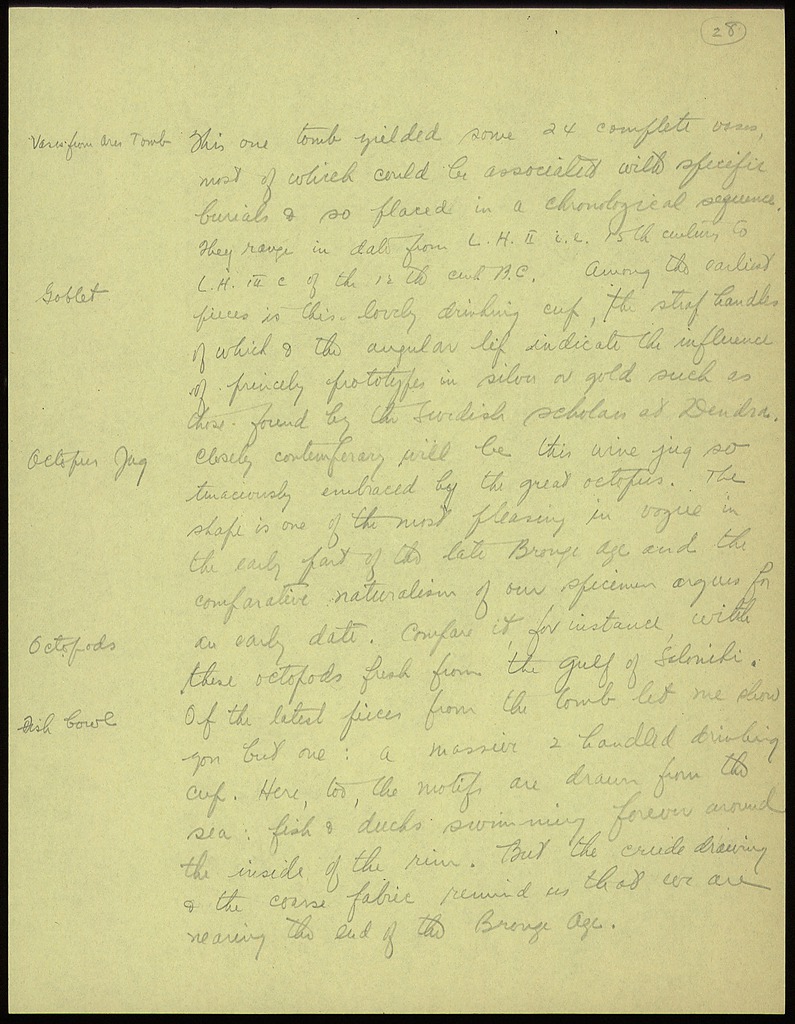 28
Vases from Ares Tomb This one tomb yielded some 24 complete vases,
most of which could be associated with specific
burials & so placed in a chronological sequence.
They range in date from L.H. II i.e. 15th century to
L.H. III C of the 12th cent B.C. Among the earliest
Goblet pieces is this lovely drinking cup, the strap handles
of which & the angular lip indicate the influence
of princely prototypes in silver or gold such as
those found by the Swedish scholars at Dendra.
Octopus Jug Closely contemporary will be this wine jug so
tenaciously embraced by the great octopus. The
shape is one of the most pleasing in vogue in
the early part of the late Bronze Age and the
comparative naturalism of our specimen argues for
Octopods an early date. Compare it, for instance, with
these octopods fresh from the gulf of Saloniki.
Fish bowl Of the latest pieces from the tomb let me show
you but one: a massive 2 handled drinking
cup. Here, too, the motifs are drawn from the
sea: fish & ducks swimming forever around
the inside of the rim. But the crude drawing
& the coarse fabric remind us that we are
nearing the end of the Bronze Age.